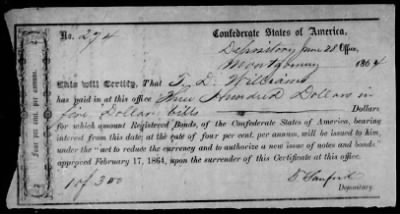 No. 274
Confederate States of America.
Depository Office,
June 28
Montgomery 1864
This will Certify, That T. D. Williams
has paid in at this office Three Hundred Dollars in
five Dollar bills Dollars,
for which amount Registered Bonds, of the Confederate States of America, bearing
interest from this date, at the rate of four per cent. per annum, will be issued to him,
under the "act to reduce the currency and to authorize a new issue of notes and bonds,"
approved February 17, 1864, upon the surrender of this Certificate at this office.
1 of 300
Sanford
Depositary.
Four per cent. per annum.